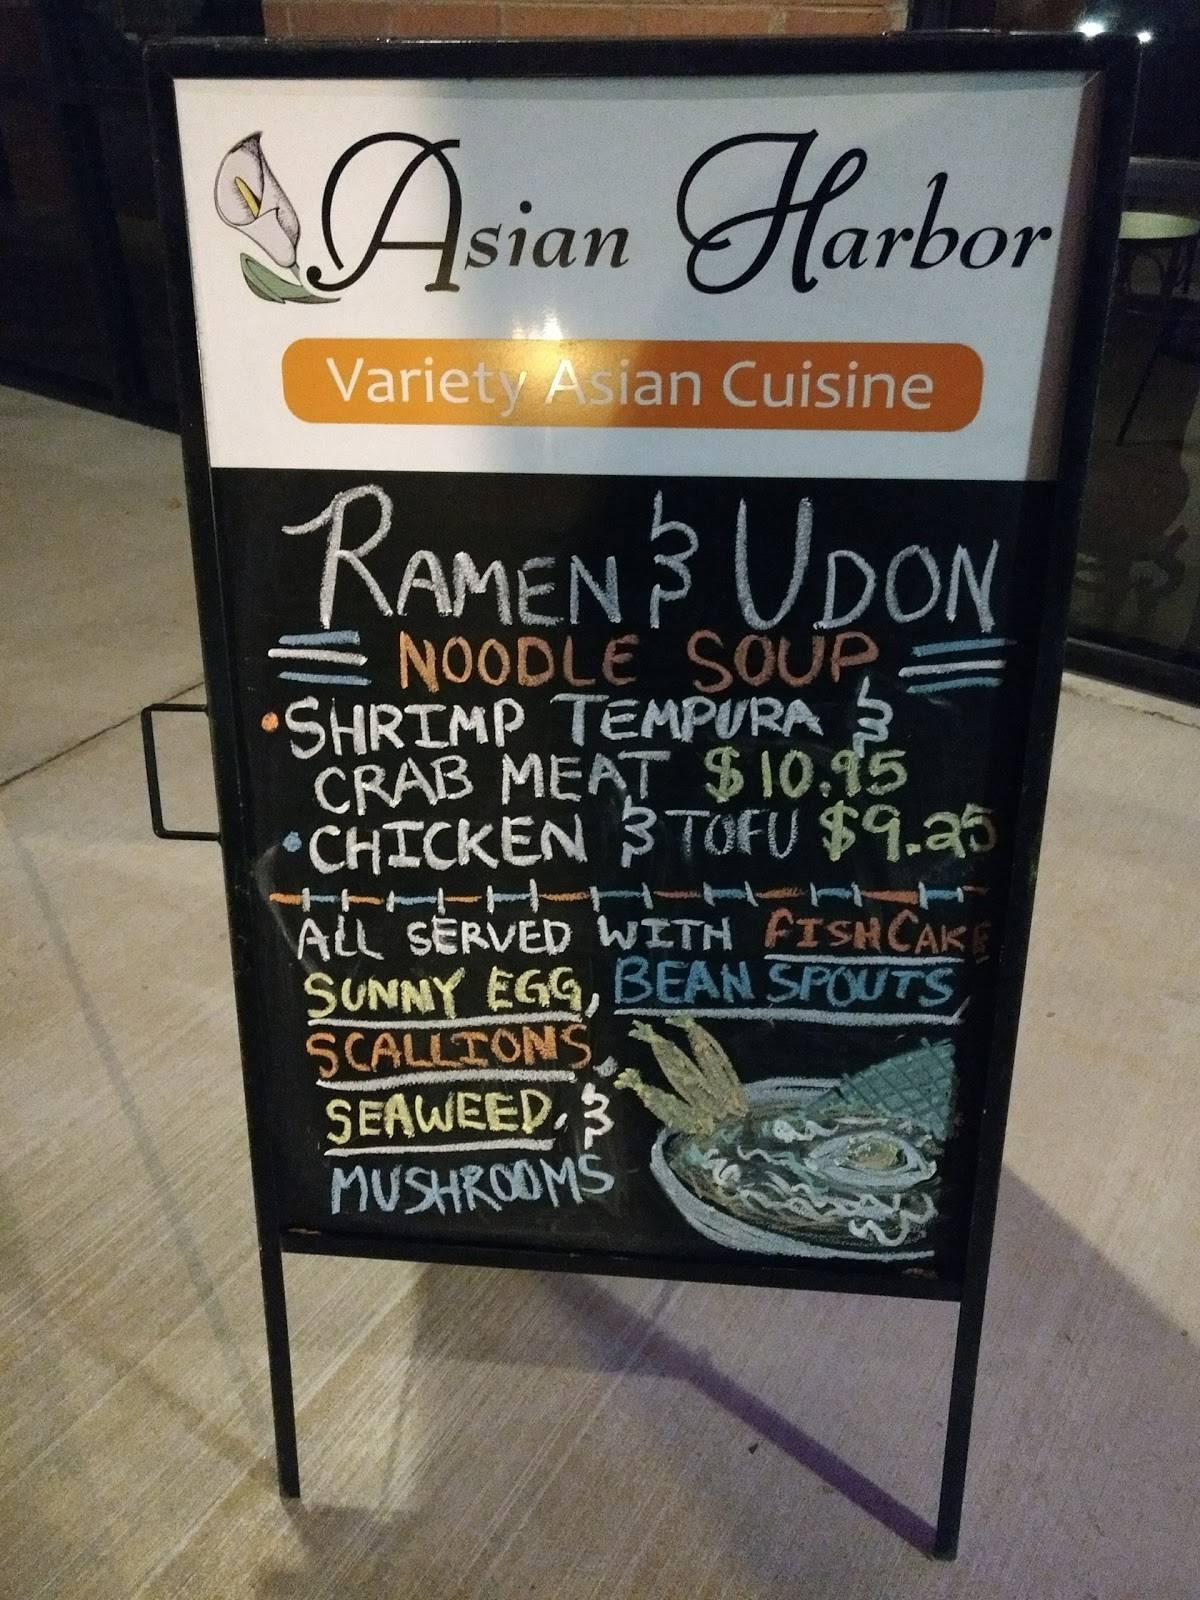 Asian Harbor
Variety Asian Cuisine
RAMEN & UDON
NOODLE SOUP
• SHRIMP TEMPURA &
CRAB MEAT $10.95
• CHICKEN & TOFU $9.25
ALL SERVED WITH FISHCAKE
SUNNY EGG, BEAN SPOUTS,
SCALLIONS,
SEAWEED, &
MUSHROOMS